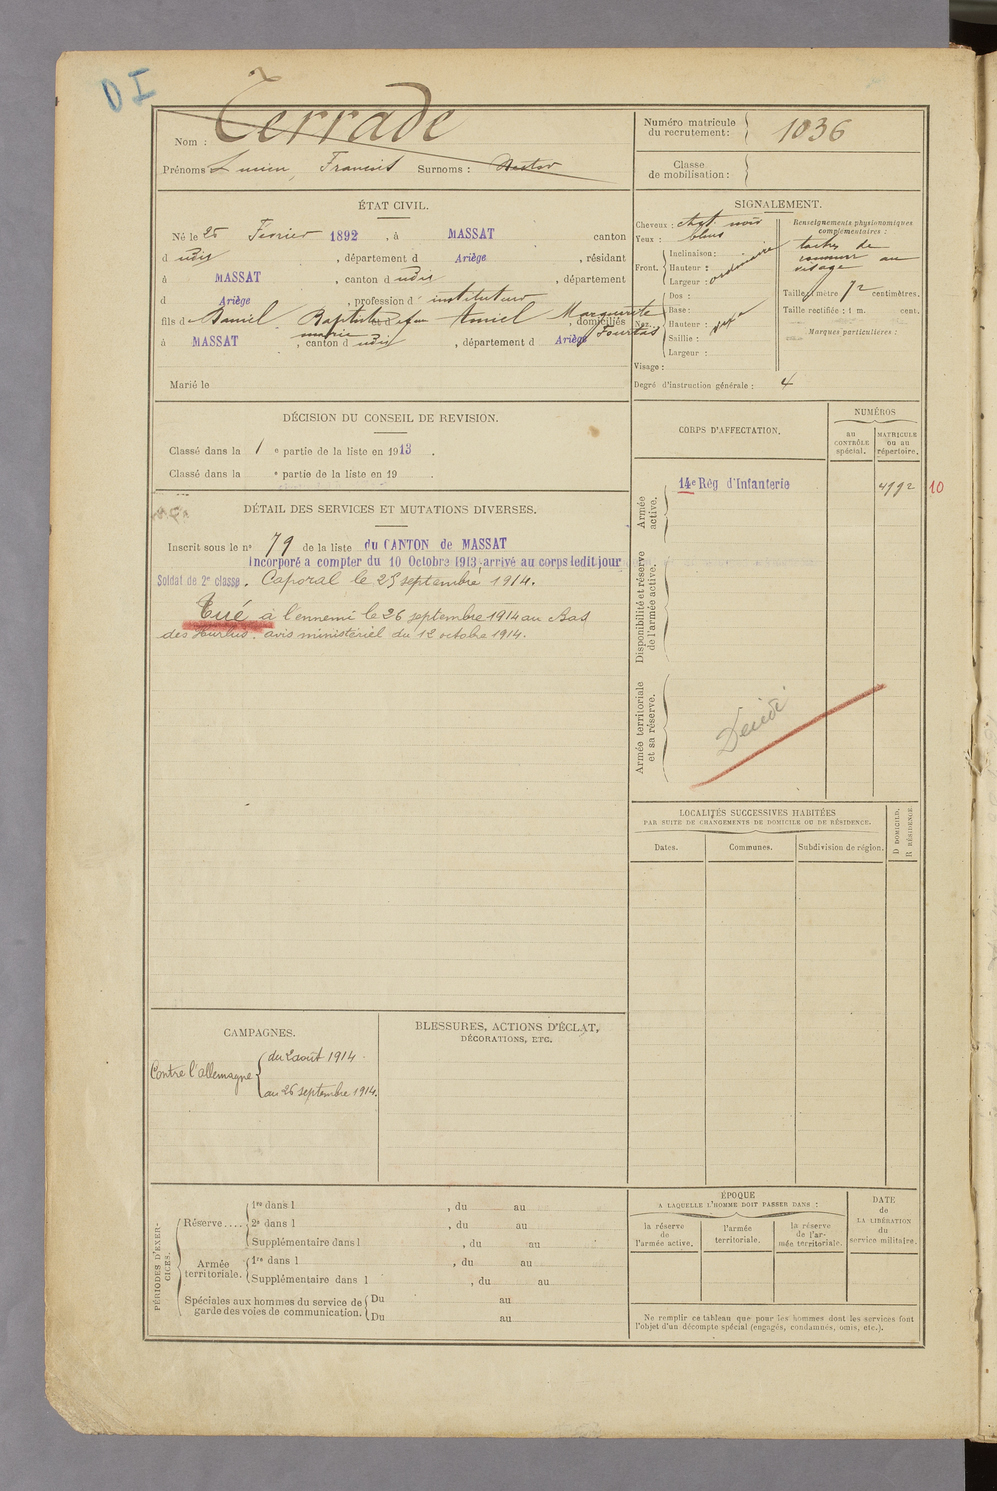 DI
Nom : Terrade
Prénoms Lucien, François Surnoms : Hector
Numéro matricule du recrutement : 1036
Classe de mobilisation :
ÉTAT CIVIL.
Né le 25 Février 1892, à MASSAT canton
d udit, département d Ariège, résidant
à MASSAT, canton d udit, département
d Ariège, profession d' instituteur
fils d Baptiste et d Marguerite, domiciliés
à MASSAT, canton d udit, département d Ariège
Marié le
SIGNALEMENT.
Cheveux : chat noir
Yeux : bleus
Front. Inclinaison :
Hauteur : ordinaire
Largeur :
Nez. Dos :
Base :
Hauteur :
Saillie :
Largeur :
Visage :
Renseignements physionomiques complémentaires :
taches de
rousseur au
visage
Taille 1 mètre 72 centimètres.
Taille rectifiée : 1 m. cent.
Marques particulières :
Degré d'instruction générale : 4
DÉCISION DU CONSEIL DE REVISION.
Classé dans la 1 e partie de la liste en 1913.
Classé dans la e partie de la liste en 19 .
DÉTAIL DES SERVICES ET MUTATIONS DIVERSES.
Inscrit sous le n° 79 de la liste du CANTON de MASSAT
Incorporé a compter du 10 Octobre 1913, arrivé au corps ledit jour
Soldat de 2e classe. Caporal le 25 septembre 1914.
Tué à l'ennemi le 26 septembre 1914 au Bas
des Hurlus. avis ministériel du 12 octobre 1914.
CORPS D'AFFECTATION.
NUMÉROS
AU CONTRÔLE spécial.
MATRICULE OU AU répertoire.
Armée active.
14e Rég d'Infanterie 4992 10
Disponibilité et réserve de l'armée active.
Armée territoriale et sa réserve.
LOCALITÉS SUCCESSIVES HABITÉES
PAR SUITE DE CHANGEMENTS DE DOMICILE OU DE RÉSIDENCE.
Dates. Communes. Subdivision de région.
D DOMICILE. R RÉSIDENCE.
CAMPAGNES.
Contre l'allemagne
du 2 août 1914
au 26 septembre 1914.
BLESSURES, ACTIONS D'ÉCLAT,
DÉCORATIONS, ETC.
PÉRIODES D'EXERCICES.
Réserve.... 1re dans l , du au
2e dans l , du au
Supplémentaire dans l , du au
Armée territoriale. 1re dans l , du au
Supplémentaire dans l , du au
Spéciales aux hommes du service de Du au
garde des voies de communication. Du au
ÉPOQUE
A LAQUELLE L'HOMME DOIT PASSER DANS :
la réserve de l'armée active.
l'armée territoriale.
la réserve de l'armée territoriale.
DATE de LA LIBÉRATION du service militaire.
Ne remplir ce tableau que pour les hommes dont les services font
l'objet d'un décompte spécial (engagés, condamnés, omis, etc.).